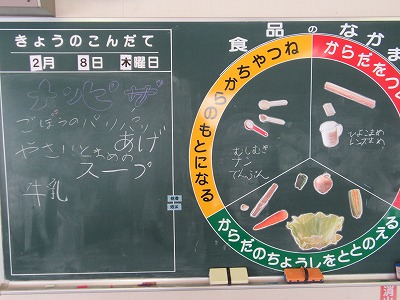 きょうのこんだて
2月 8日 木曜日
ナンピザ
ごぼうのパリパリ
あげ
やさいとまめの
スープ
牛乳
食品のなかま
ねつやちからのもとになる
からだをつ
からだのちょうしをととのえる
ナン
でんぷん
ひよこまめ
レンズまめ
消